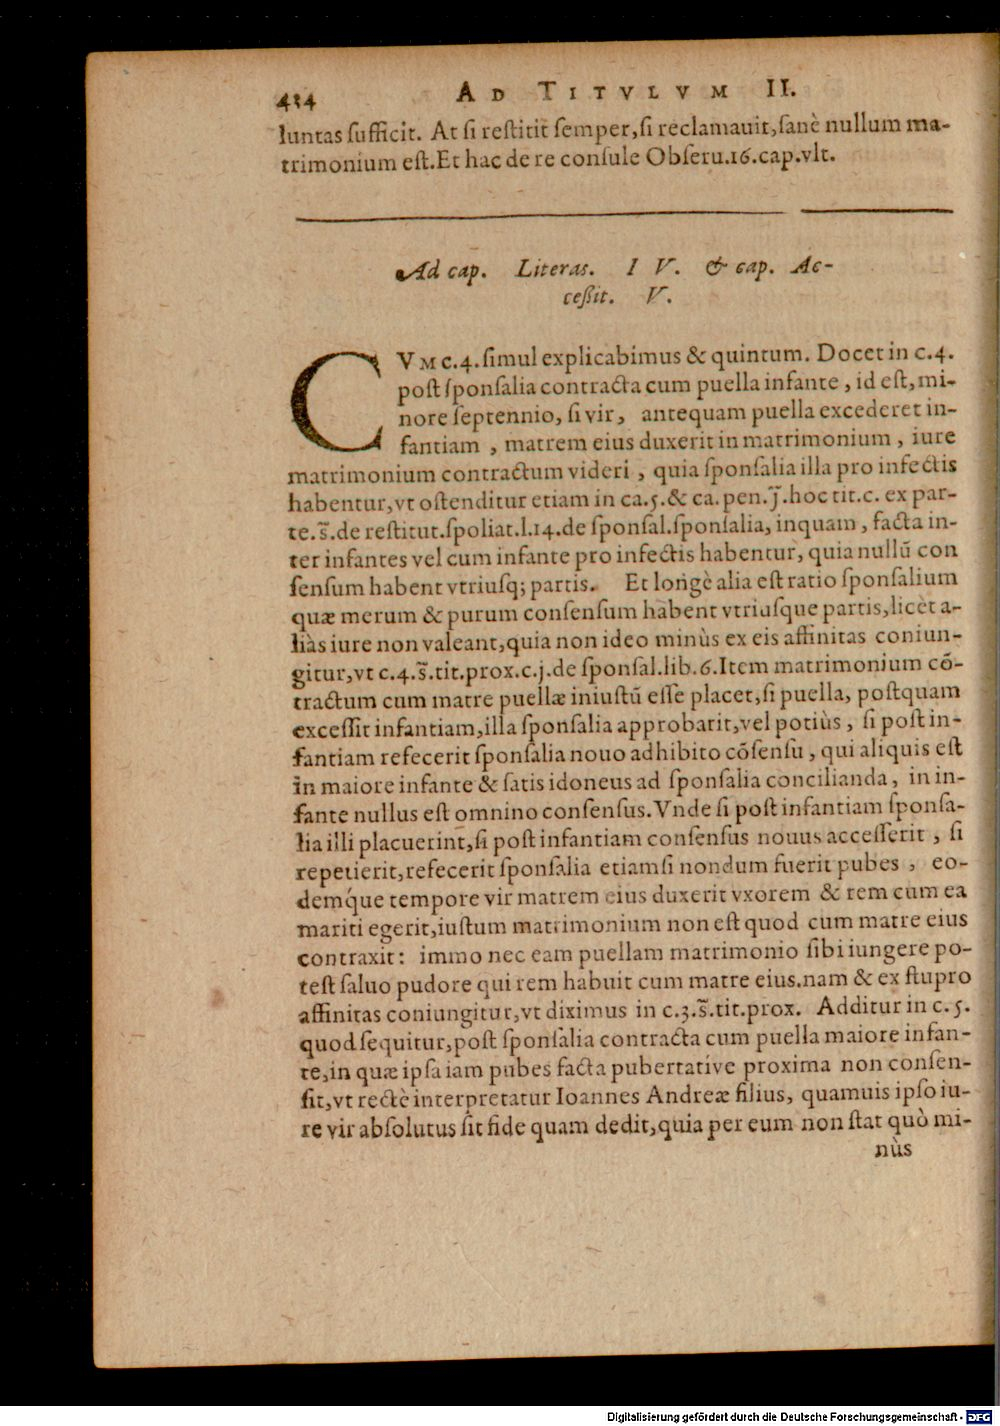 434 AD TITVLVM II.
luntas sufficit. At si restitit semper, si reclamauit, sanè nullum ma-
trimonium est. Et hac de re consule Obseru. 16. cap. vlt.
Ad cap. Literas. IV. & cap. Ac-
cessit. V.
CVM c. 4. simul explicabimus & quintum. Docet in c. 4.
post sponsalia contracta cum puella infante, id est, mi-
nore septennio, si vir, antequam puella excederet in-
fantiam, matrem eius duxerit in matrimonium, iure
matrimonium contractum videri, quia sponsalia illa pro infectis
habentur, vt ostenditur etiam in ca. 5. & ca. pen. j̃. hoc tit. c. ex par-
te. s̃. de restitut. spoliat. l. 14. de sponsal. sponsalia, inquam, facta in-
ter infantes vel cum infante pro infectis habentur, quia nullũ con
sensum habent vtriusq; partis. Et longè alia est ratio sponsalium
quæ merum & purum consensum habent vtriusque partis, licèt a-
liàs iure non valeant, quia non ideo minùs ex eis affinitas coniun-
gitur, vt c. 4. s̃. tit. prox. c. j. de sponsal. lib. 6. Item matrimonium cõ-
tractum cum matre puellæ iniustũ esse placet, si puella, postquam
excessit infantiam, illa sponsalia approbarit, vel potiùs, si post in-
fantiam refecerit sponsalia nouo adhibito cõsensu, qui aliquis est
in maiore infante & satis idoneus ad sponsalia concilianda, in in-
fante nullus est omnino consensus. Vnde si post infantiam sponsa-
lia illi placuerint, si post infantiam consensus nouus accesserit, si
repetierit, refecerit sponsalia etiamsi nondum fuerit pubes, eo-
demq́ue tempore vir matrem eius duxerit vxorem & rem cum ea
mariti egerit, iustum matrimonium non est quod cum matre eius
contraxit: immo nec eam puellam matrimonio sibi iungere po-
test saluo pudore qui rem habuit cum matre eius. nam & ex stupro
affinitas coniungitur, vt diximus in c. 3. s̃. tit. prox. Additur in c. 5.
quod sequitur, post sponsalia contracta cum puella maiore infan-
te, in quæ ipsa iam pubes facta pubertatíve proxima non consen-
sit, vt rectè interpretatur Ioannes Andreæ filius, quamuis ipso iu-
re vir absolutus sit fide quam dedit, quia per eum non stat quò mi-
nùs
Digitalisierung gefördert durch die Deutsche Forschungsgemeinschaft - DFG